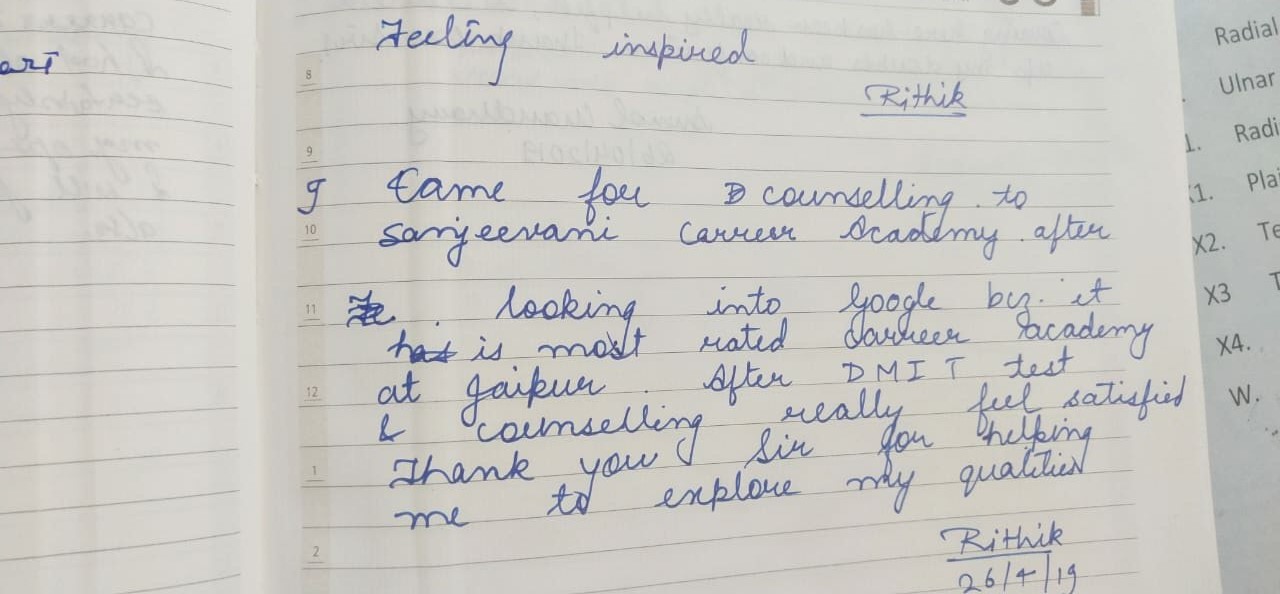 ari
Feeling inspired
8
Rithik
9
I Came for D counselling to
10
Sanjeevani Carreer Academy after
11
looking into Google bcz. it
has is most rated Carreer academy
12
at Jaipur. After DMIT test
& counselling really feel satisfied
Thank you Sir for helping
1
me to explore my qualities
2
Rithik
26/4/19
Radial
Ulnar
1. Radi
X1. Plai
X2. Te
X3 T
X4.
W.